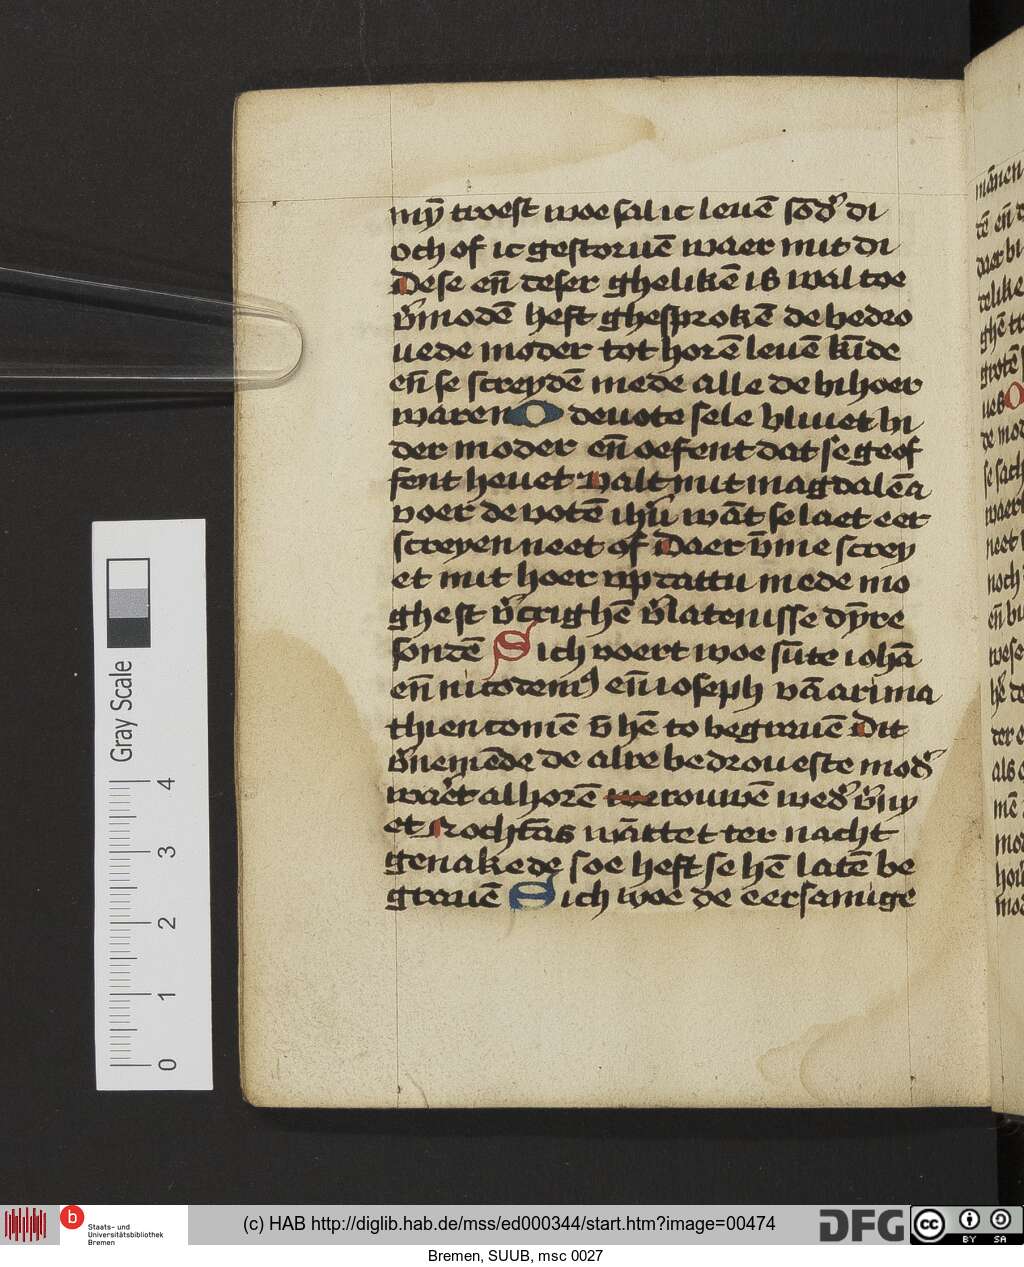 mȳ troest woe sal ic leuē sōd' di
och of ic gestoruē waer mit di
Dese en̄ deser ghelikē is wal toe
v'modē heft ghesprokē de bedro
uede moder tot horē leuē kīde
en̄ se screydē mede alle de bi hoer
waren O deuote sele bliuet bi
der moder en̄ oefent dat se geof
fent heuet Valt mit magdalēa
voer de votē ihū wāt se laet eer
screyen neet of Daer v̄me screy
et mit hoer mede mo
ghe st v'crighē v'latenisse dȳre
sondē Sich voert woe sūte iohā
en̄ nicodem⁹ en̄ ioseph vā arima
thien comē v̄ hē to begrauē Dit
v'nemēde de alre bedroueste mod'
waē't al horē rouwē wed' v'ny
et Noch wāttet ter nacht
genakede soe heft se hē latē be
grauē Sich woe de eersamige
Gray Scale
4
3
2
1
0
b
Staats- und
Universitätsbibliothek
Bremen
(c) HAB http://diglib.hab.de/mss/ed000344/start.htm?image=00474
DFG
cc
BY SA
Bremen, SUUB, msc 0027